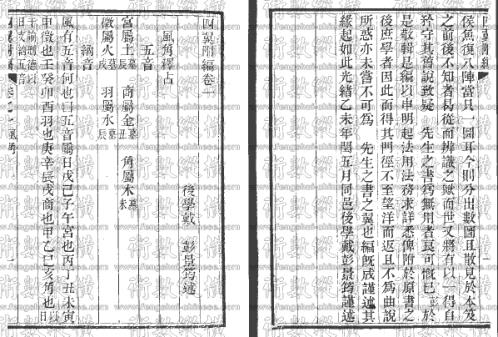 侯魚復八陣當只一圖耳今則分出數圖且散見於本笈
之前後不知者曷從而辨識之賦而世又將有以一得自
矜守其舊說致疑　先生之書爲無用者良可慨已彭於
是敬輯是編以申明起法用法務求詳悉俾附於原書之
後庶學者因此而得其門徑不至望洋而返且不爲曲說
所惑亦未嘗不可爲　先生之書之翼也編旣成謹述其
緣起如此光緒乙未年閏五月同邑後學戴彭景筠謹述
四翼附編卷一
後學戴　彭景筠述
風角釋占
五音
宮屬土墓辰　商屬金墓丑　角屬木墓未
徵屬火墓戌　羽屬水墓辰
納音
風有五音何也曰五音屬日戊己子午宮也丙丁丑未寅
申徵也壬癸卯酉羽也庚辛辰戌商也甲乙巳亥角也以日